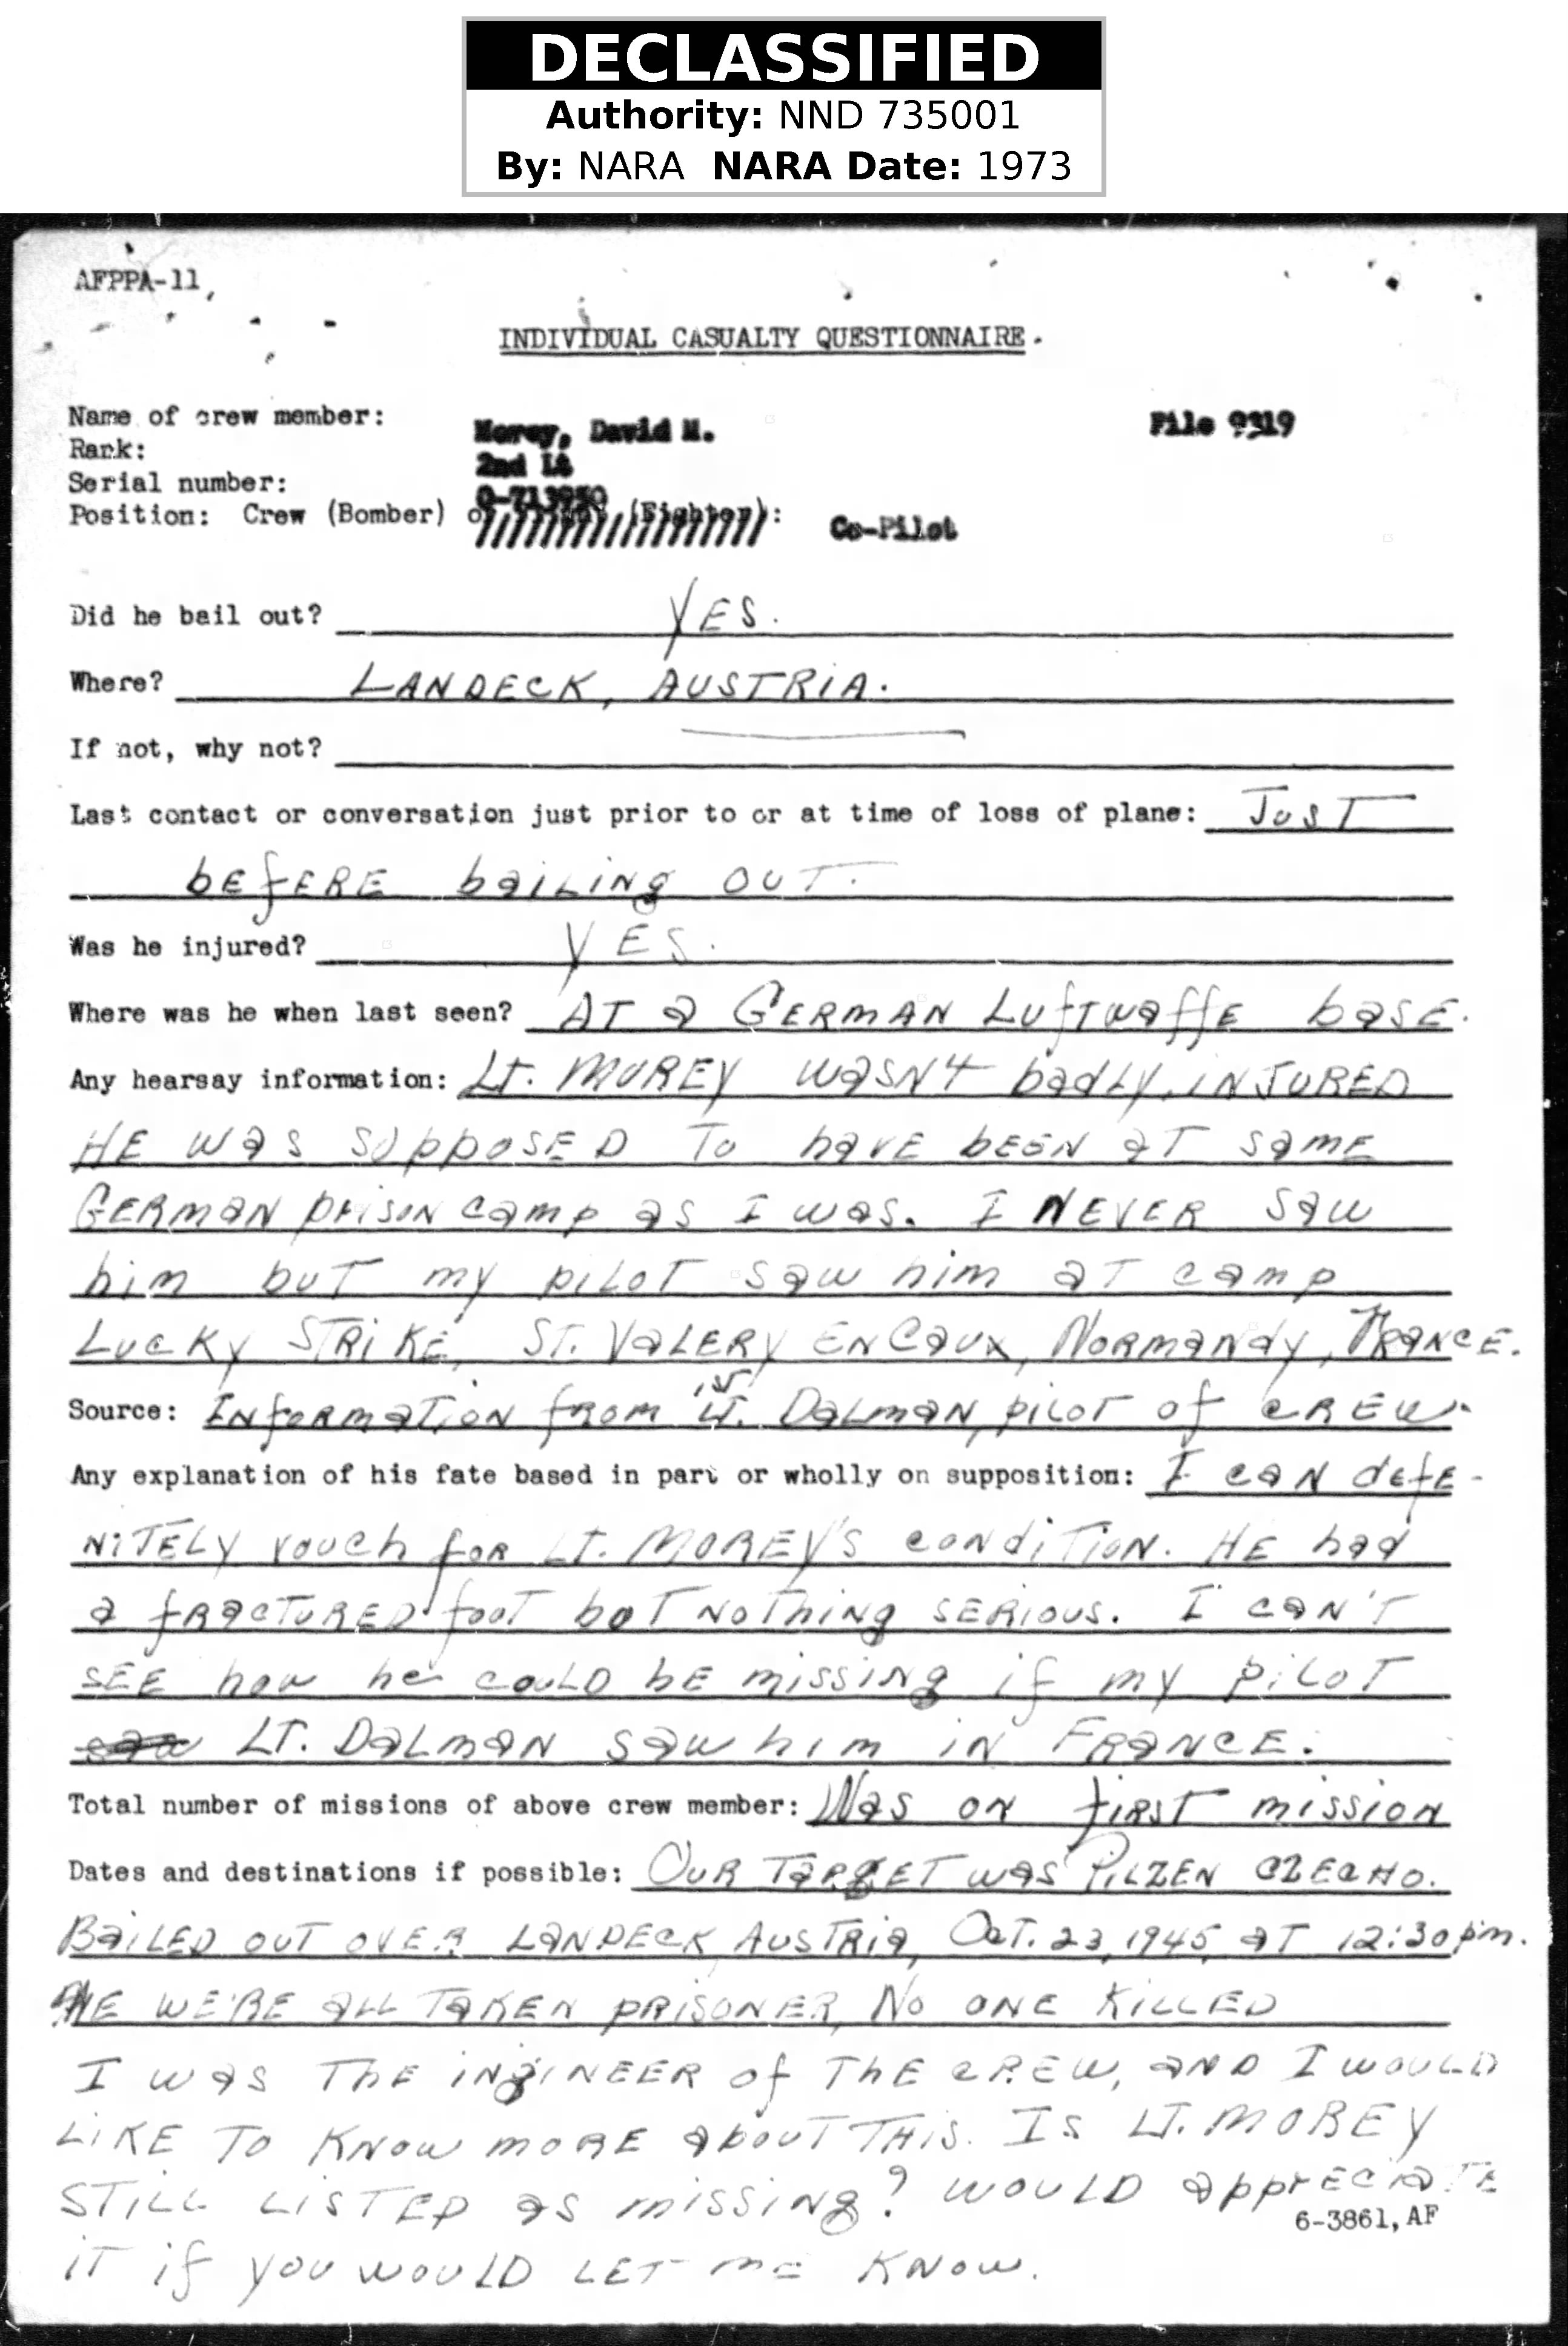 DECLASSIFIED
Authority: NND 735001
By: NARA NARA Date: 1973
AFPPA-11
INDIVIDUAL CASUALTY QUESTIONNAIRE.
Name of crew member: Morey, David M. File 9319
Rank: 2nd Lt
Serial number: O-713950
Position: Crew (Bomber) or (Fighter): Co-Pilot
Did he bail out? YES.
Where? LANDECK, AUSTRIA.
If not, why not?
Last contact or conversation just prior to or at time of loss of plane: JUST
bEfERE bailing OUT.
Was he injured? YES.
Where was he when last seen? AT a GERMAN LUfTWaffE basE.
Any hearsay information: LT. MOREY wasN't badLy INJURED
HE was SUppOSED To havE bEEN aT samE
GERMaN prison camp as I was. I NEVER saw
him buT my piLOT saw him aT camp
LucKy STRiKE, ST. VaLERY EN Caux, NORMaNdy, FRaNcE.
Source: INfORMaTiON fROM 1ST LT. DaLmaN, piLOT of cREW.
Any explanation of his fate based in part or wholly on supposition: I caN defE-
NiTELY vouch fOR LT. MOREY'S cONdiTiON. HE had
a fRacTUREd fooT buT NOThiNg SERIOUS. I caN'T
SEE how he couLD bE missiNg if my piLOT
saw LT. DaLmaN saw him iN FRaNCE.
Total number of missions of above crew member: Was ON fiRST missioN
Dates and destinations if possible: OUR TaRgET was PiLZEN CZECHO.
BaiLED OUT OVER LaNDEcK AUSTRia, OcT. 23, 1945 aT 12:30 pm.
WE WE'RE aLL TaKEN pRisONER, No ONE KiLLED
I was ThE iNgiNEER of ThE cREW, aND I wouLD
LiKE TO KNow moRE abouT THis. Is LT. MOREY
STiLL LiSTED as missiNg? WouLD apprECiaTE
6-3861, AF
iT if you wouLD LET me KNow.